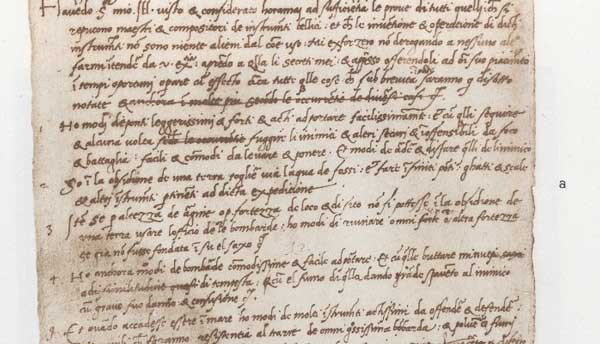 Havedo S. mio Ill. visto & considerato horamai ad sufficientia le prove di tutti quelli che si
reputono maestri & compositori de instrumti bellici: et che le inventione & operatione di dicti
instrumti nō sono niente alieni dal cōe uso: mi exforzero nō derogando a nessuno altro
farmi ītender da v. ex. aprēdo a qlla li secreti mei: & apresso offerendoli ad ōi suo piacimēto
ī tempi oportuni operare cū effecto circa tutte qlle cose che sub brevita saranno qui disotto
notate & anchora ī molte piu secōdo le occurrētie de diversi casi
1 Ho modi de ponti leggerissimi & forti & acti ad portare facilissimamte: et cū qlli seguire
& alcuna volta secōdo le occurrētie fuggire li inimici & altri securi & inoffensibili da foco
& battaglia: facili & cōmodi da levare & ponere. Et modi de arder & disfare qlli de linimico
2 So ī la obsidione de una terra toglier via laqua de fossi: et fare ifiniti pōti ghatti & scale
& altri īstrumti ptinēti ad dicta expeditione
3 Itē se p altezza de argine o p fortezza de loco & di sito nō si potesse ī la obsidione de
una terra usare lofficio de le bombarde: ho modi di ruinare omni altra fortezza
se gia nō fusse fondata ī su el saxo
4 Ho anchora modi de bombarde cōmodissime & facile ad portare: Et cū qlle buttare minuti
ad similitudine quasi di tempesta: & cū el fumo di qlla dando grāde spavēto al inimico
cū grave suo danno & cōfusione
9 Et quādo accadesse essere ī mare ho modi de molti īstrumti actissimi da offender & defender:
faranno resistentia al trarre de omni grossissima bōbarda: & polver & fumi
a